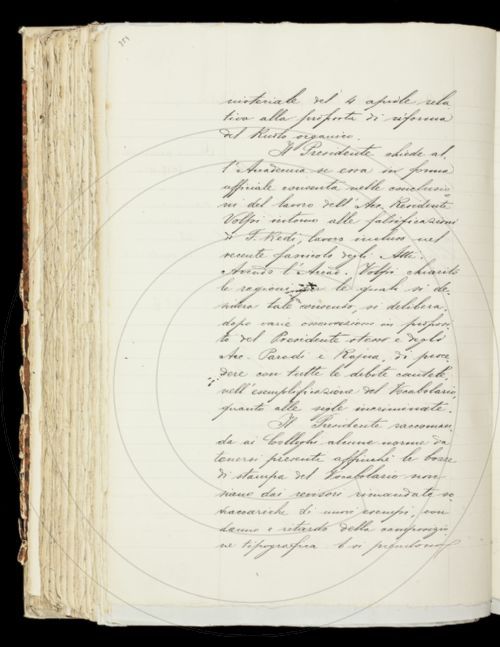 nisteriale del 4 aprile rela
tiva alla proposta di riforma
del Ruolo organico.
Il Presidente chiede al
l'Accademia se essa in forma
ufficiale consenta nelle conclusio
ni del lavoro dell'Acc. Residente
Volpi intorno alle falsificazioni
di F. Redi, lavoro incluso nel
recente fascicolo degli Atti.
Avendo l'Accad. Volpi chiarite
le ragioni per le quali si de
sidera tale consenso, si delibera,
dopo varie osservazioni in proposi
to del Presidente stesso e degli
Acc. Parodi e Rajna, di proce
dere con tutte le debite cautele
nell'esemplificazione del Vocabolario,
quanto alle voci incriminate.
Il Presidente raccoman
da ai Colleghi alcune norme da
tenersi presente affinché le bozze
di stampa del Vocabolario non
siano dai revisori rimandate so
vraccariche di nuovi esempi, con
danno e ritardo della composizio
ne tipografica. E si prendono